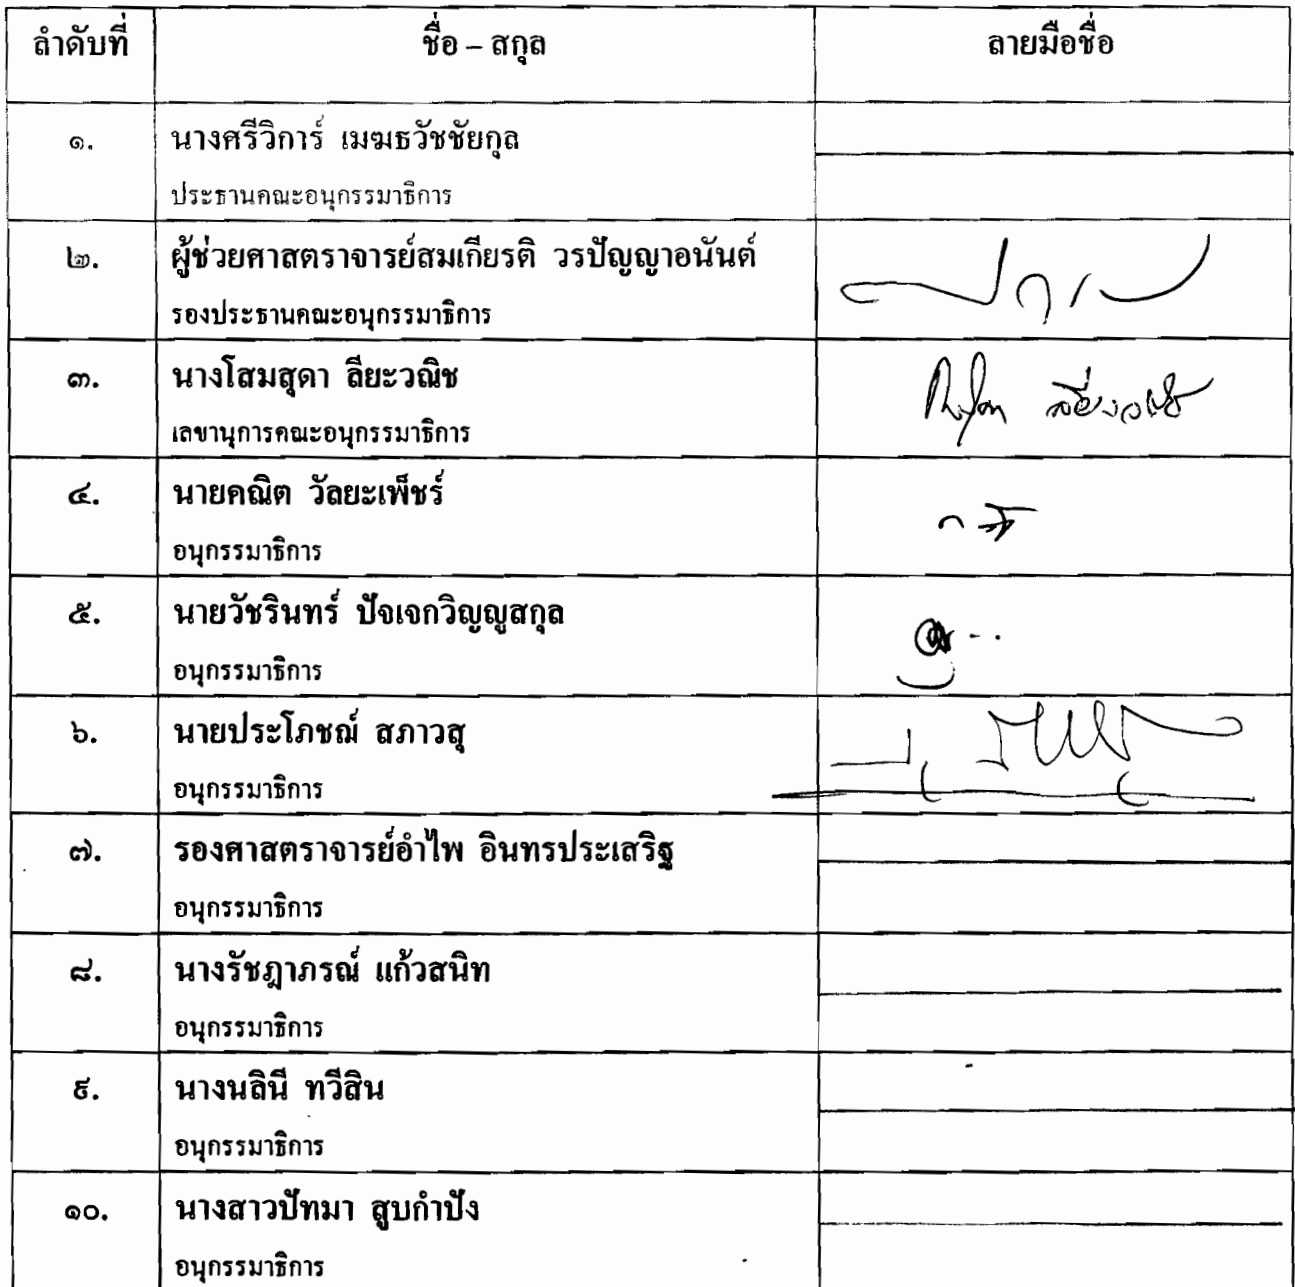 ลำดับที่ ชื่อ – สกุล ลายมือชื่อ
๑. นางศรีวิการ์ เมฆธวัชชัยกุล
ประธานคณะอนุกรรมาธิการ
๒. ผู้ช่วยศาสตราจารย์สมเกียรติ วรปัญญาอนันต์
รองประธานคณะอนุกรรมาธิการ
๓. นางโสมสุดา ลียะวณิช
เลขานุการคณะอนุกรรมาธิการ
๔. นายคณิต วัลยะเพ็ชร์
อนุกรรมาธิการ
๕. นายวัชรินทร์ ปัจเจกวิญญูสกุล
อนุกรรมาธิการ
๖. นายประโภชฌ์ สภาวสุ
อนุกรรมาธิการ
๗. รองศาสตราจารย์อำไพ อินทรประเสริฐ
อนุกรรมาธิการ
๘. นางรัชฎาภรณ์ แก้วสนิท
อนุกรรมาธิการ
๙. นางนลินี ทวีสิน
อนุกรรมาธิการ
๑๐. นางสาวปัทมา สูบกำปัง
อนุกรรมาธิการ